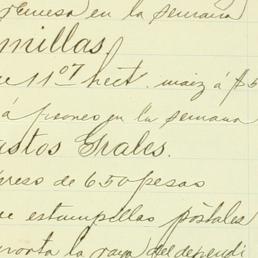 remesa en la semana
millas
11 07 hect. maiz á $5
á peones en la semana
astos Grales.
reso de 650 pesos
e estampillas postales
la raya del dependi